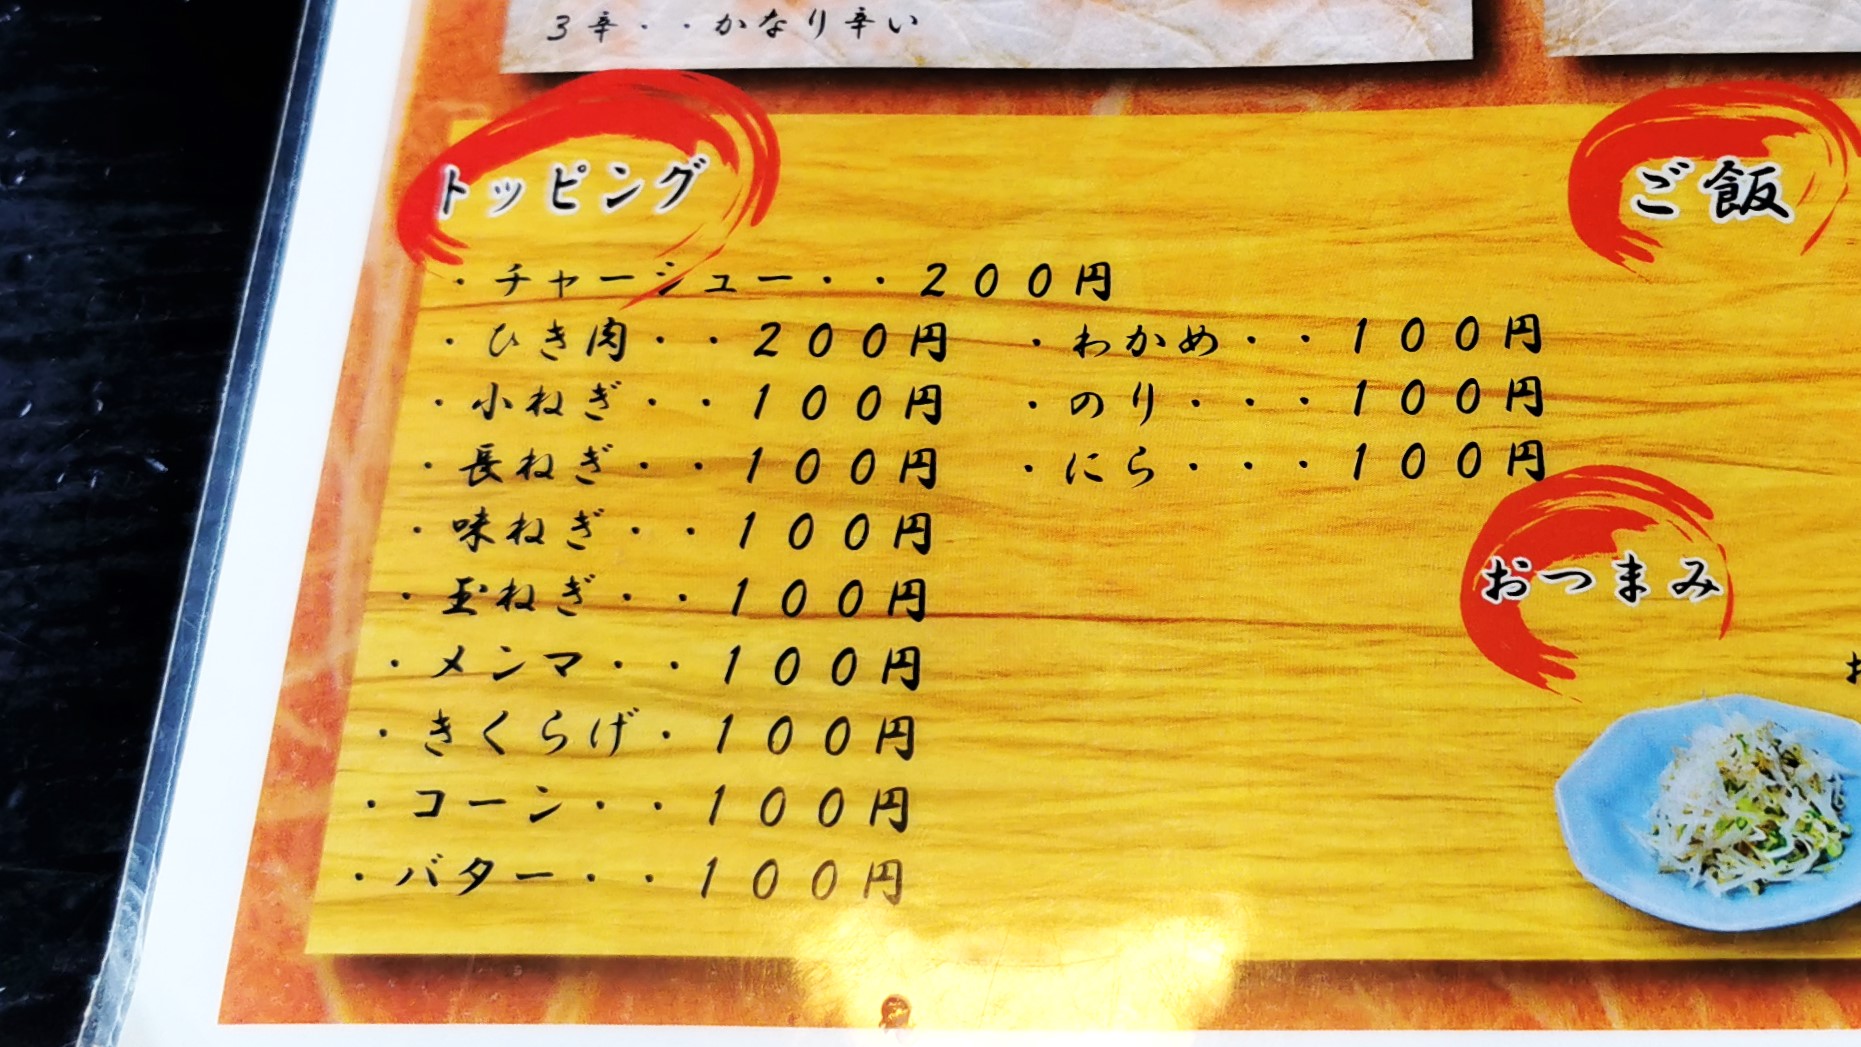 3辛・・かなり辛い
トッピング
・チャーシュー・・200円
・ひき肉・・200円
・小ねぎ・・100円
・長ねぎ・・100円
・味ねぎ・・100円
・玉ねぎ・・100円
・メンマ・・100円
・きくらげ・100円
・コーン・・100円
・バター・・100円
・わかめ・・100円
・のり・・・100円
・にら・・・100円
ご飯
おつまみ